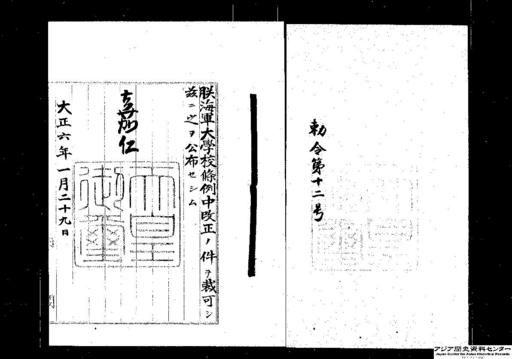 勅令第十二号
朕海軍大學校條例中改正ノ件ヲ裁可シ
茲ニ之ヲ公布セシム
嘉仁
大正六年一月二十九日
天皇御璽
アジア歴史資料センター
Japan Center for Asian Historical Records